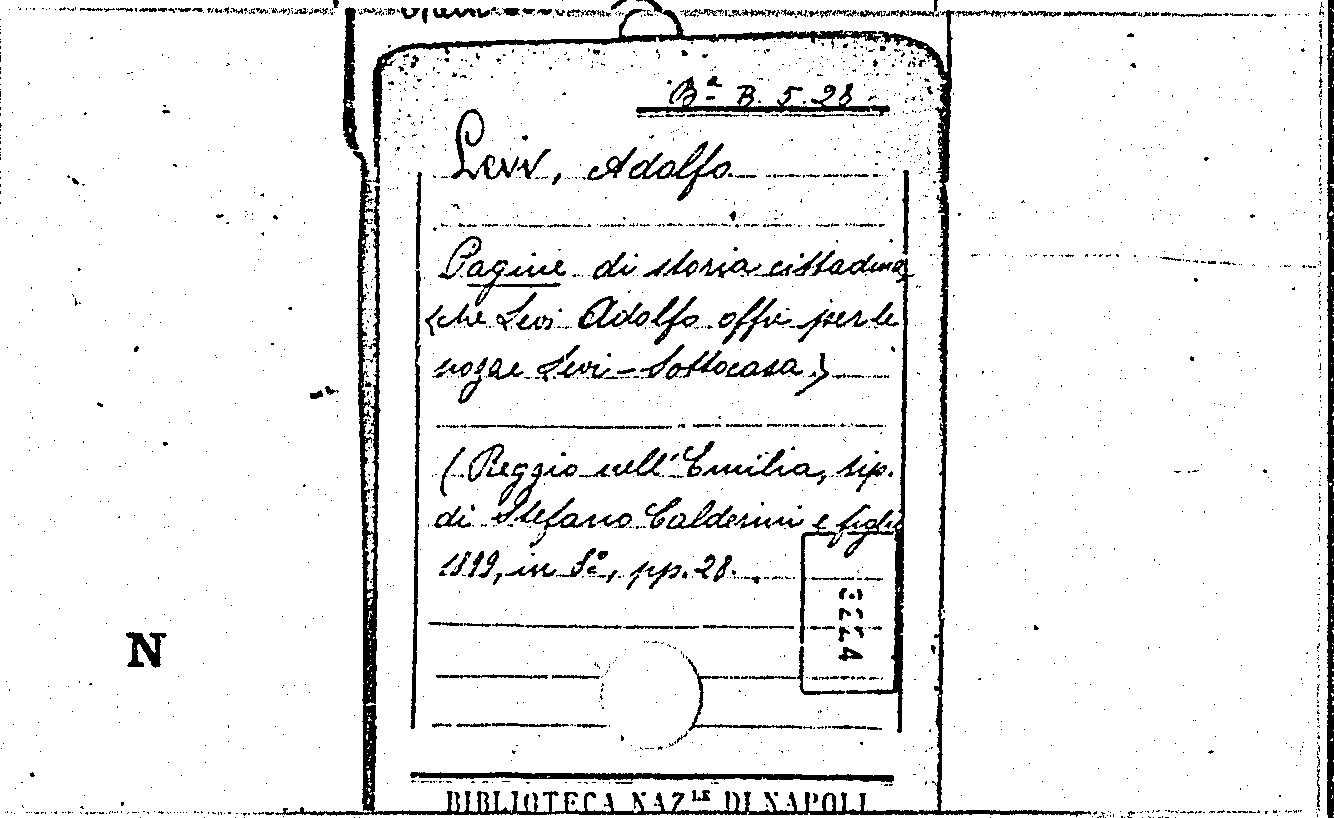 Bª B. 5.28
Levi, Adolfo
Pagine di storia cittadina
<che Levi Adolfo offre per le
nozze Levi-Sottocasa>
(Reggio nell'Emilia, tip.
di Stefano Calderini e figlio
in 8º, pp. 28.
3224
N
BIBLIOTECA NAZ.LE DI NAPOLI